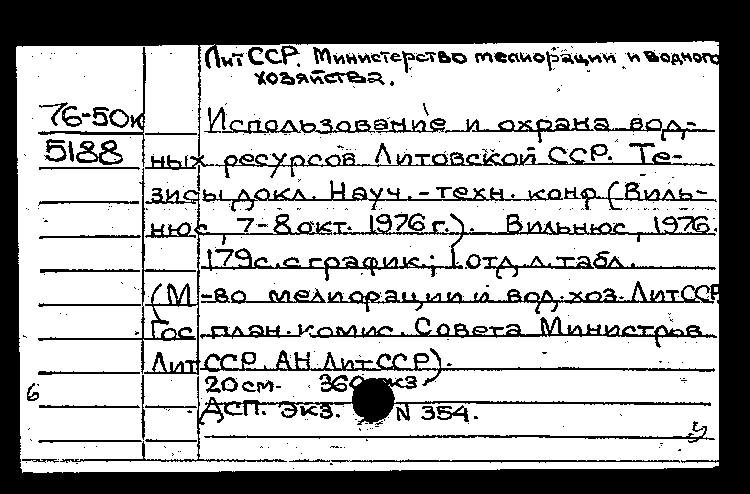 ЛитССР. Министерство мелиорации и водного
хозяйства.
76-50к Использование и охрана вод-
5188 ных ресурсов Литовской ССР. Те-
зисы докл. Науч.-техн. конф (Виль-
нюс, 7-8 окт. 1976 г.). Вильнюс, 1976.
179 с. с график.; 1 отд. л. табл.
(М-во мелиорации и вод. хоз. ЛитССР
Гос план. комис. Совета Министров
ЛитССР. АН ЛитССР).
20 см. 360 экз.
6 ДСП. экз. N 354.